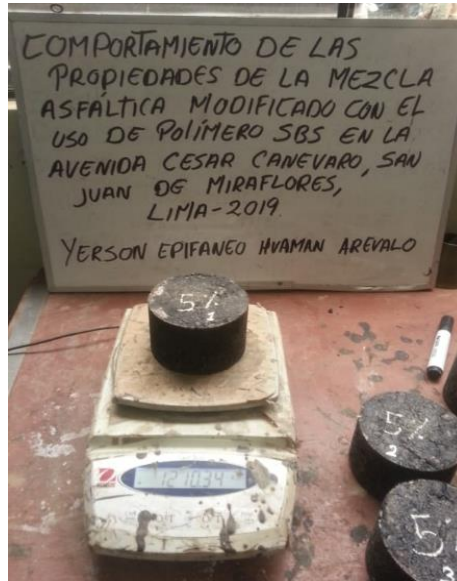 COMPORTAMIENTO DE LAS
PROPIEDADES DE LA MEZCLA
ASFÁLTICA MODIFICADO CON EL
USO DE POLÍMERO SBS EN LA
AVENIDA CESAR CANEVARO, SAN
JUAN DE MIRAFLORES,
LIMA-2019.
YERSON EPIFANEO HUAMAN AREVALO
5%
1
1270.34
5%
2
5
3